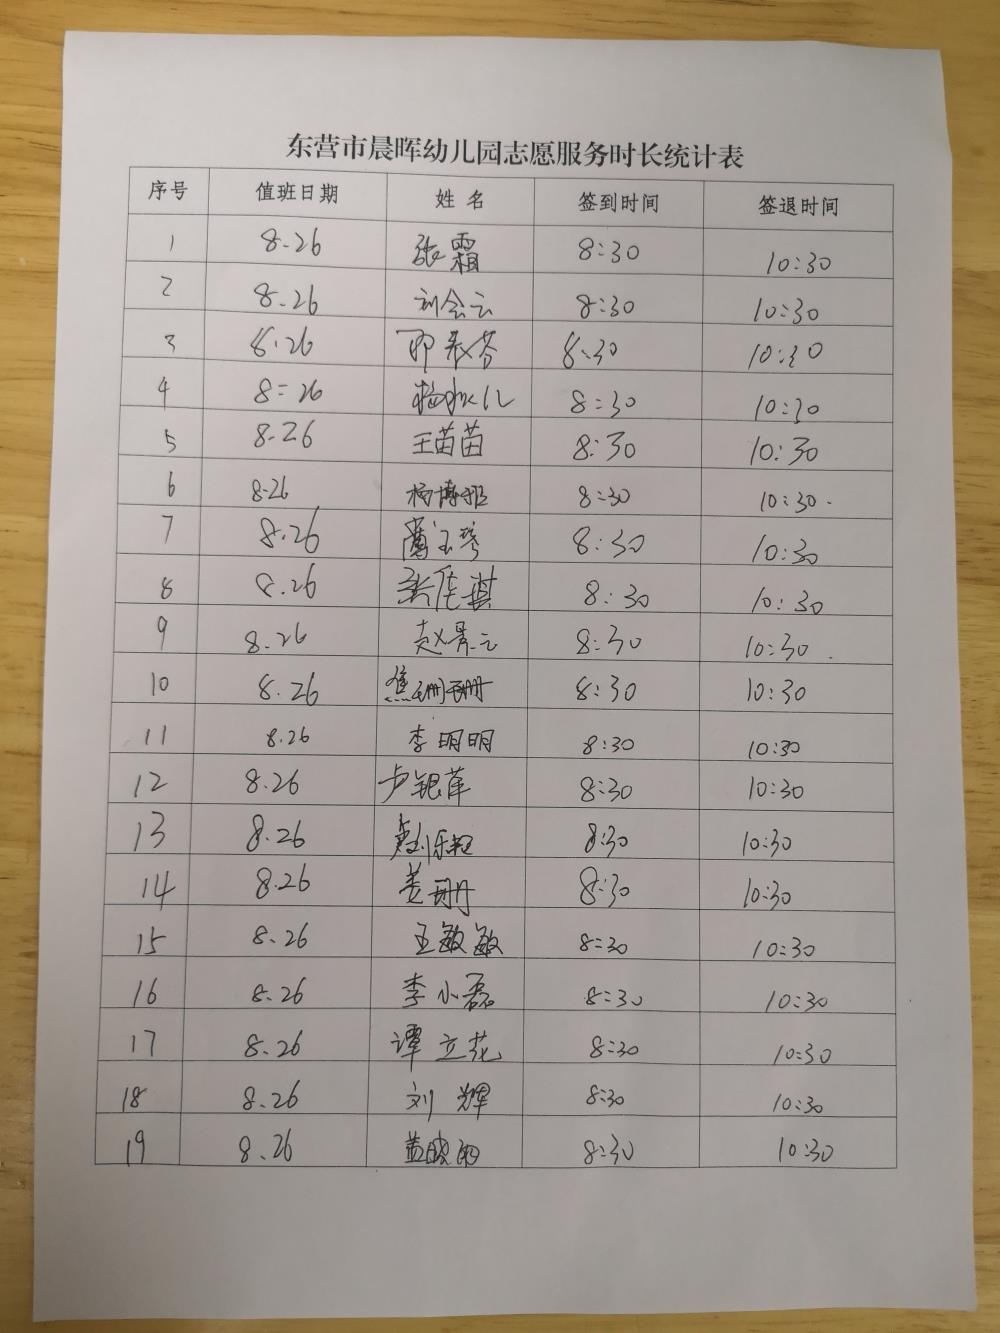 东营市晨晖幼儿园志愿服务时长统计表
序号 值班日期 姓名 签到时间 签退时间
1 8.26 张霜 8:30 10:30
2 8.26 刘会云 8:30 10:30
3 8.26 8:30 10:30
4 8:26 8:30 10:30
5 8.26 王苗苗 8:30 10:30
6 8.26 8:30 10:30
7 8.26 8:30 10:30
8 8.26 8:30 10:30
9 8.26 赵景云 8:30 10:30
10 8.26 焦珊珊 8:30 10:30
11 8.26 李明明 8:30 10:30
12 8.26 卢银萍 8:30 10:30
13 8.26 8:30 10:30
14 8.26 姜珊 8:30 10:30
15 8.26 王敏敏 8:30 10:30
16 8.26 李小磊 8:30 10:30
17 8.26 谭立花 8:30 10:30
18 8.26 刘辉 8:30 10:30
19 8.26 8:30 10:30